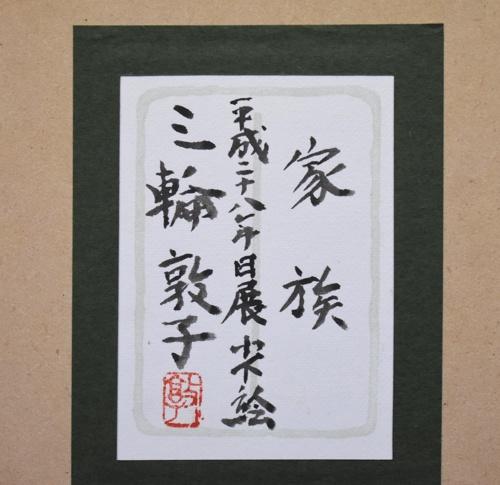 家族
平成二十八年日展小下絵
三輪敦子